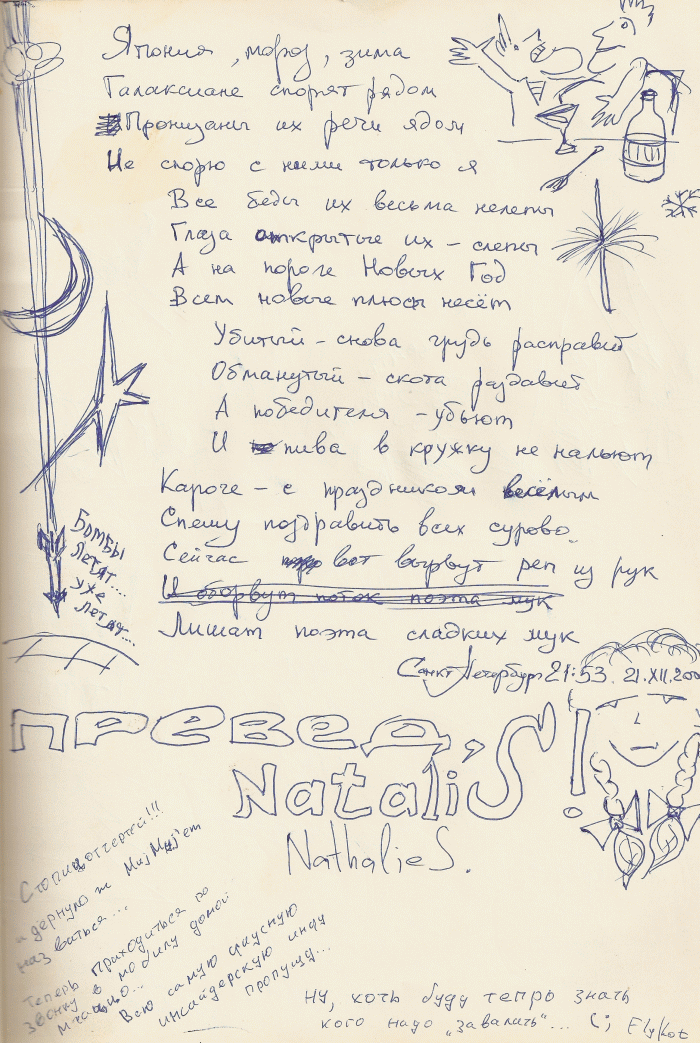 Япония, мороз, зима
Галаксиане спорят рядом
Пронизаны их речи ядом
Не спорю с ними только я
Все беды их весьма нелепы
Глаза открытые их - слепы
А на пороге Новых Год
Всем новые плюсы несёт
Убитый - снова грудь расправит
Обманутый - скота раздавит
А победителя - убьют
И пива в кружку не нальют
Кароче - с праздником весёлым
Спешу поздравить всех сурово
Сейчас вот вырвут реп из рук
И оборвут поток поэта мук
Лишат поэта сладких мук
Санкт Петербург 21:53. 21.XII.200
Бомбы
летят...
уже
летят...
превед,
Natali'S!
Nathalie S.
и дернуло ж
назваться...
Теперь приходиться по
звонку в мобилу домой
Всю самую вкусную
инсайдерскую инфу
пропущу...
Ну, хоть буду тепрь знать
кого надо „завалить"... (; ElyKot